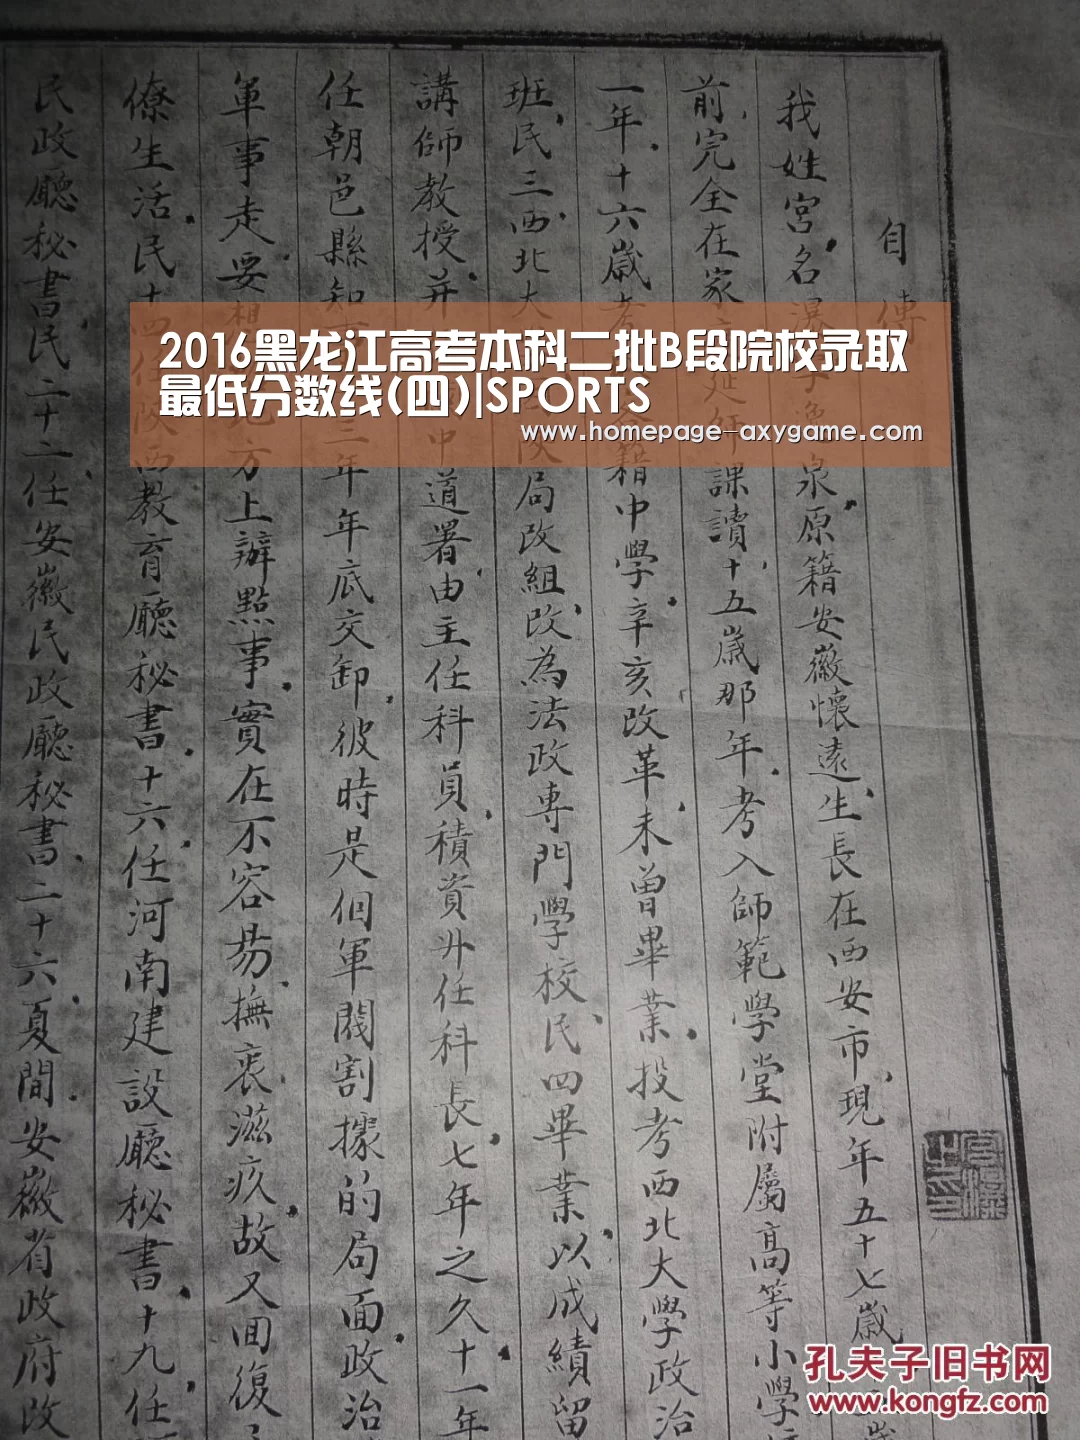 自傳
我姓宮名
泉原籍安徽懷遠生長在西安市現年五十七歲
前完全在家
延師課讀十五歲那年考入師範學堂附屬高等小學
一年十六歲考
籍中學辛亥改革未曾畢業投考西北大學政治
班民三西北大
局改組改為法政專門學校民四畢業以成績留
講師教授并
中道署由主任科員積資升任科長七年之久十一年
任朝邑縣知
三年年底交卸彼時是個軍閥割據的局面政治
軍事走要想
北方上辦點事實在不容易撫衷滋疚故又回復
僚生活民十四任陝西教育廳秘書十六任河南建設廳秘書十九任
民政廳秘書民二十二任安徽民政廳秘書二十六夏間安徽省政府改
2016黑龙江高考本科二批B段院校录取
最低分数线(四)|SPORTS
www.homepage-axygame.com
孔夫子旧书网
www.kongfz.com